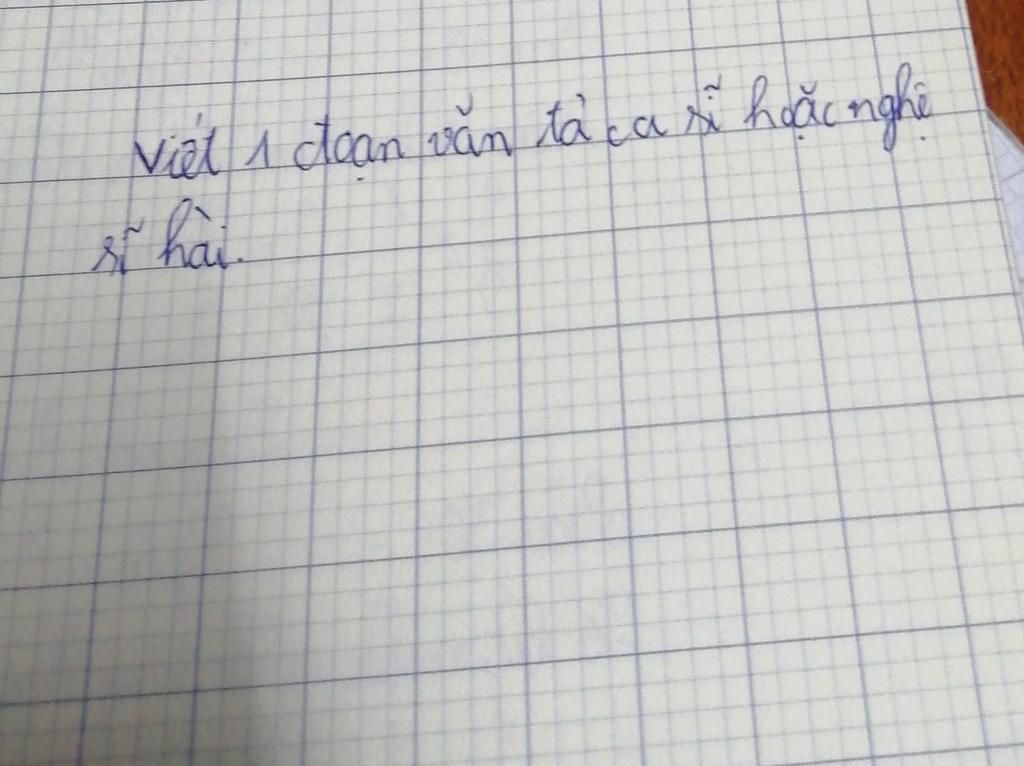 Viết 1 đoạn văn tả ca sĩ hoặc nghệ
sĩ hài.